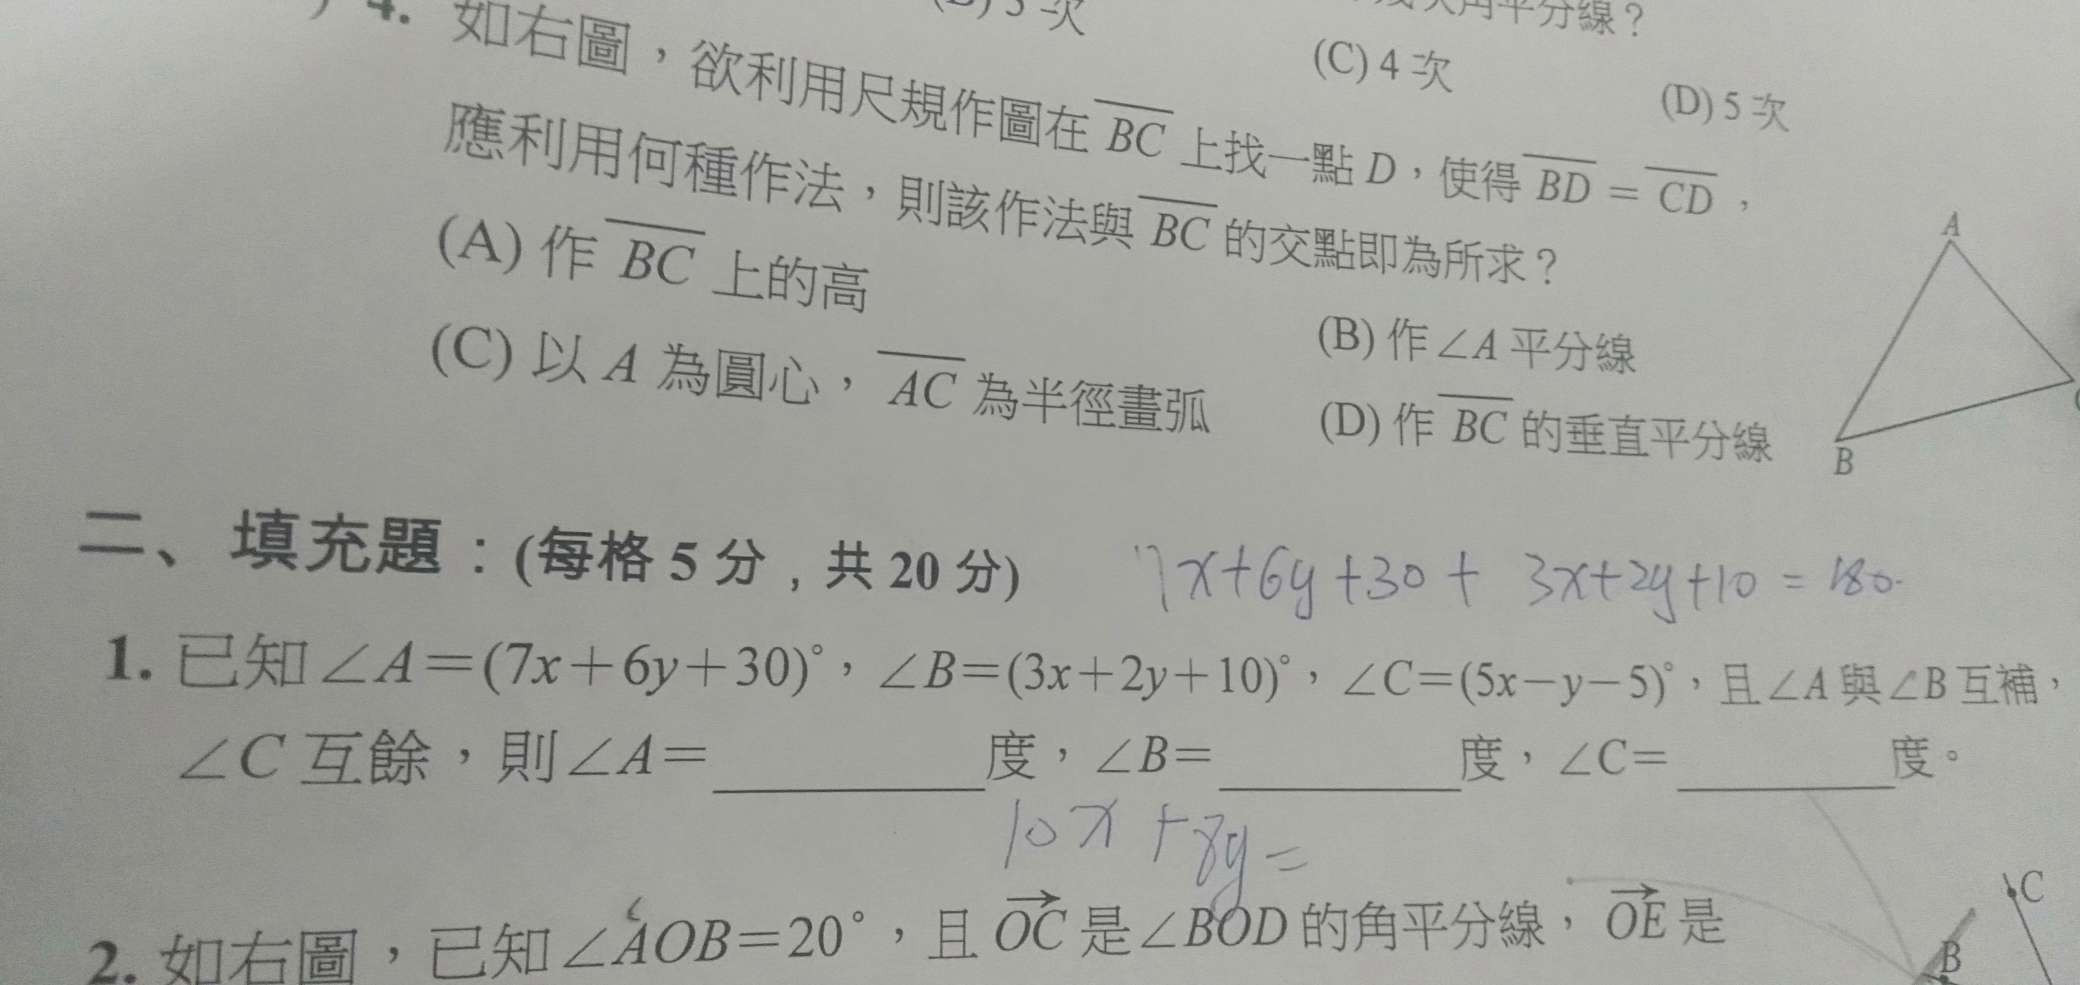 (C) 4 次
(D) 5 次
4. 如右圖，欲利用尺規作圖在 BC 上找一點 D，使得 BD = CD，
應利用何種作法，則該作法與 BC 的交點即為所求？
(A) 作 BC 上的高
(B) 作∠A 平分線
(C) 以 A 為圓心，AC 為半徑畫弧
(D) 作 BC 的垂直平分線
A
B
二、填充題：(每格 5 分，共 20 分)
7x+6y+30+ 3x+2y+10=180
1. 已知∠A=(7x+6y+30)°，∠B=(3x+2y+10)°，∠C=(5x-y-5)°，且∠A與∠B互補，
∠C 互餘，則∠A=______度，∠B=______度，∠C=______度。
10x+8y=
2. 如右圖，已知∠AOB=20°，且 OC 是∠BOD 的角平分線，OE 是
C
B